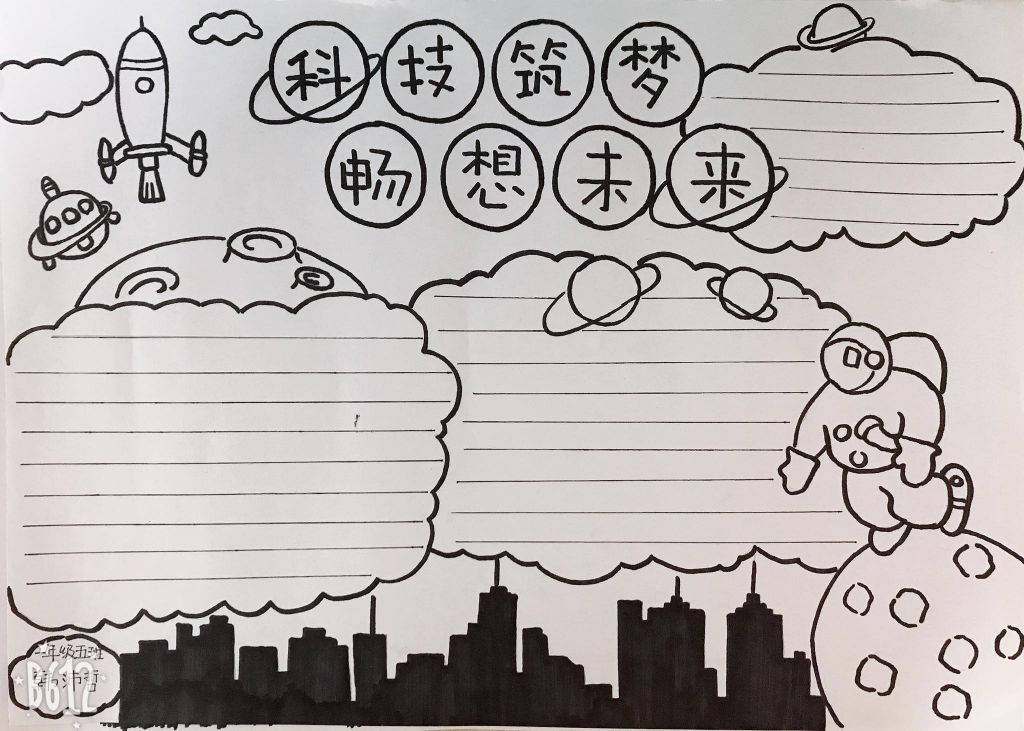 科技筑梦
畅想未来
二年级五班
B612